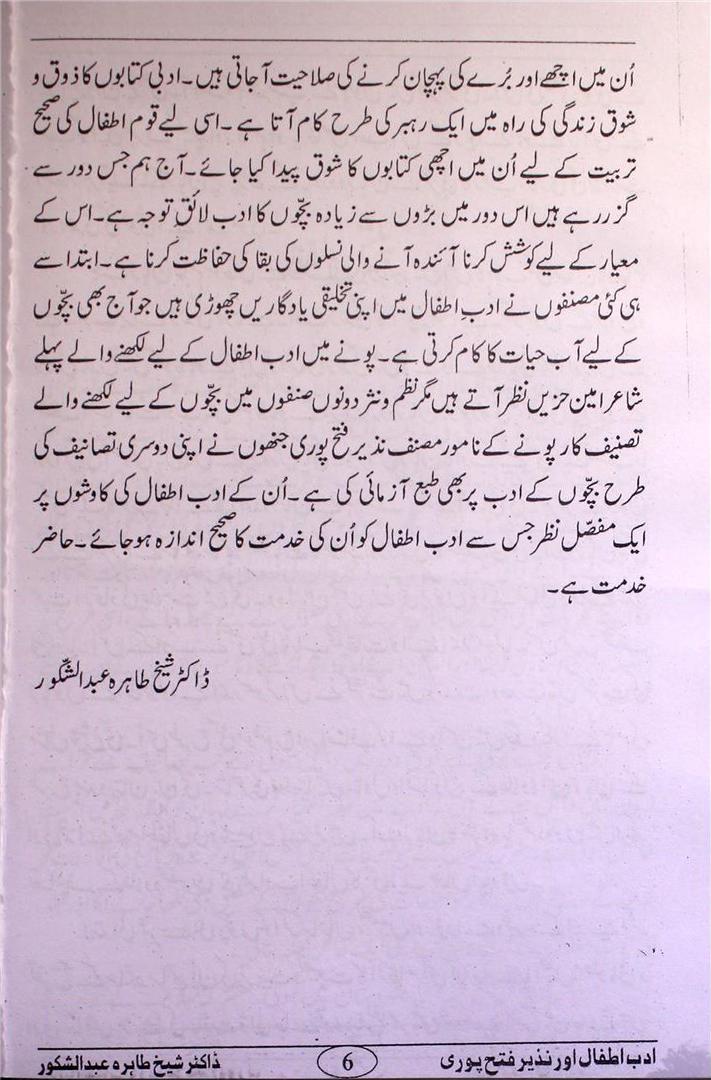 اُن میں اچھے اور بُرے کی پہچان کرنے کی صلاحیت آجاتی ہیں۔ ادبی کتابوں کا ذوق و
شوق زندگی کی راہ میں ایک رہبر کی طرح کام آتا ہے۔ اسی لیے قوم اطفال کی صحیح
تربیت کے لیے اُن میں اچھی کتابوں کا شوق پیدا کیا جائے۔ آج ہم جس دور سے
گزر رہے ہیں اس دور میں بڑوں سے زیادہ بچّوں کا ادب لائقِ توجہ ہے۔ اس کے
معیار کے لیے کوشش کرنا آئندہ آنے والی نسلوں کی بقا کی حفاظت کرنا ہے۔ ابتدا سے
ہی کئی مصنفوں نے ادب اطفال میں اپنی تخلیقی یادگاریں چھوڑی ہیں جو آج بھی بچّوں
کے لیے آب حیات کا کام کرتی ہے۔ پونے میں ادب اطفال کے لیے لکھنے والے پہلے
شاعر امین حزیں نظر آتے ہیں مگر نظم و نثر دونوں صنفوں میں بچّوں کے لیے لکھنے والے
تصنیف کار پونے کے نامور مصنف نذیر فتح پوری جنھوں نے اپنی دوسری تصانیف کی
طرح بچّوں کے ادب پر بھی طبع آزمائی کی ہے۔ اُن کے ادب اطفال کی کاوشوں پر
ایک مفصّل نظر جس سے ادب اطفال کو اُن کی خدمت کا صحیح اندازہ ہو جائے۔ حاضر
خدمت ہے۔
ڈاکٹر شیخ طاہرہ عبدالشّکور
ادب اطفال اور نذیر فتح پوری 6 ڈاکٹر شیخ طاہرہ عبدالشکور